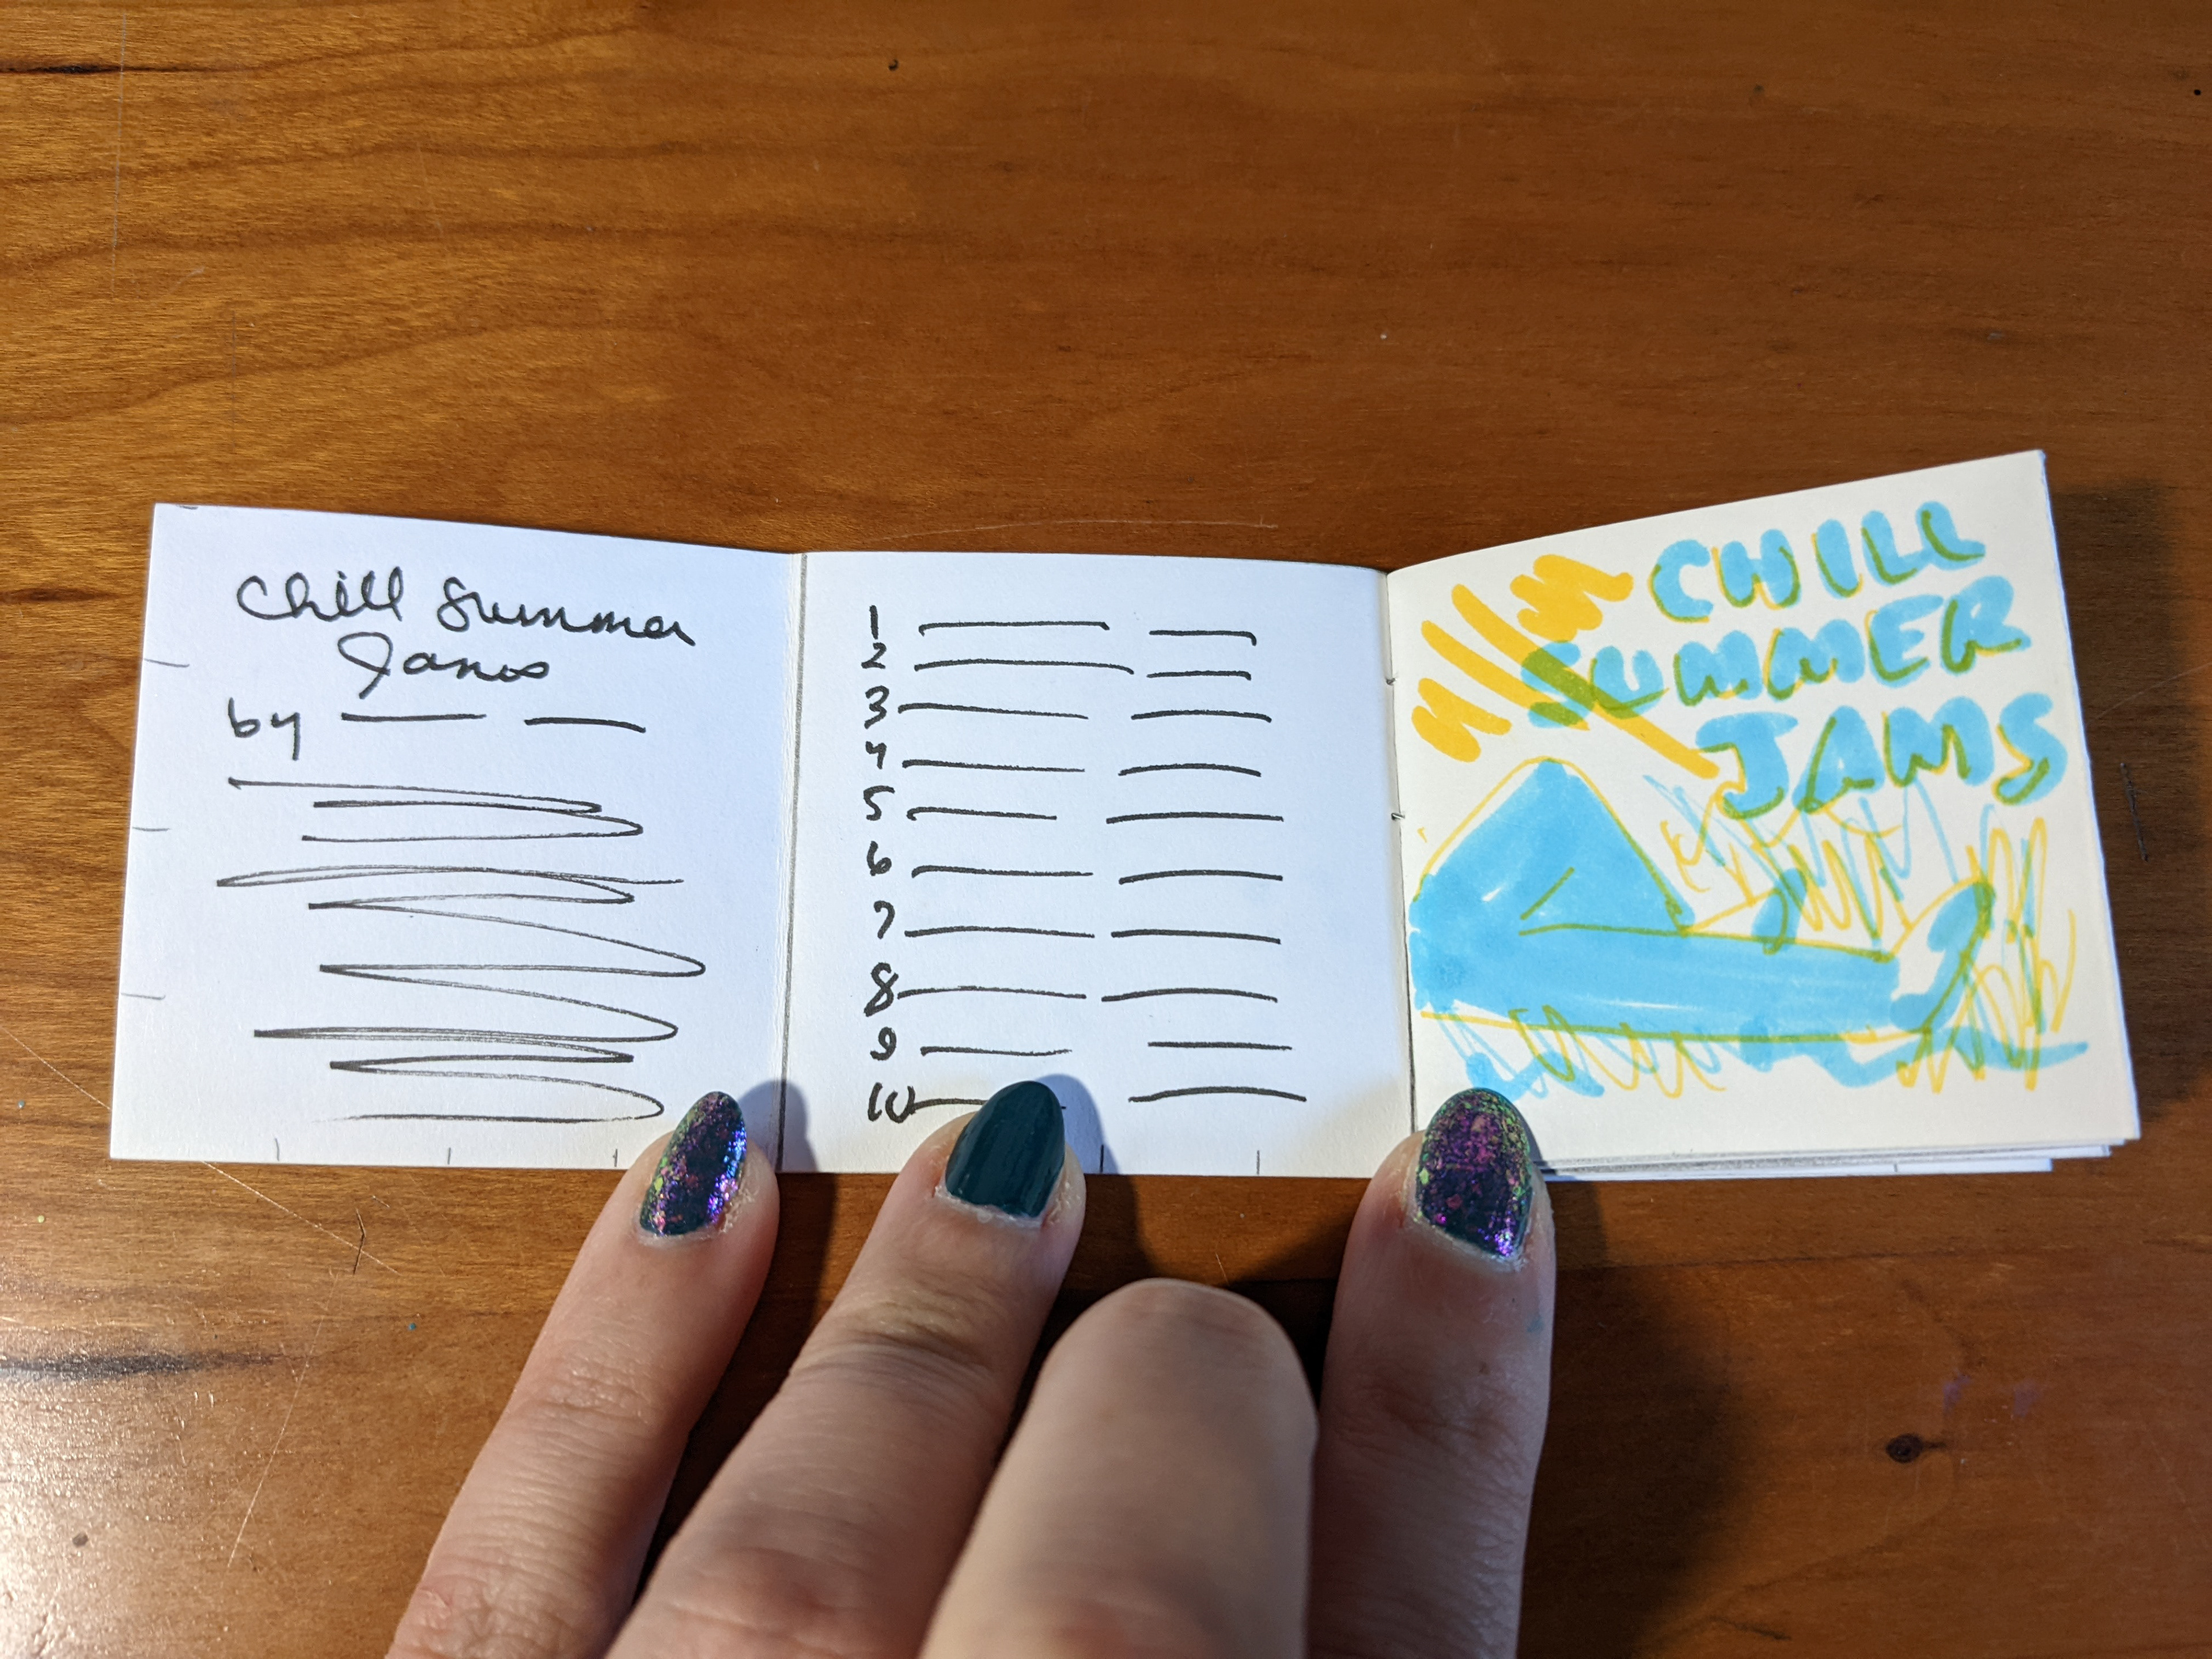 Chill Summer
Jams
by
1
2
3
4
5
6
7
8
9
10
CHILL
SUMMER
JAMS